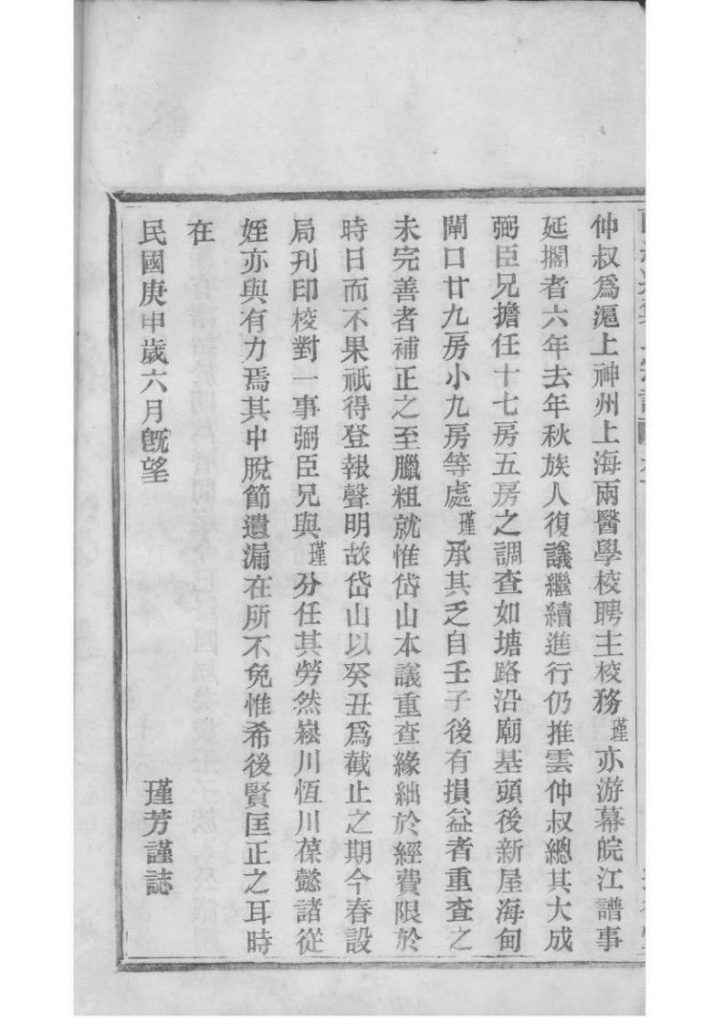 仲叔爲滬上神州上海兩醫學校聘主校務瑾亦游幕皖江譜事
延擱者六年去年秋族人復議繼續進行仍推雲仲叔總其大成
弼臣兄擔任十七房五房之調查如塘路沿廟基頭後新屋海甸
閘口廿九房小九房等處瑾承其乏自壬子後有損益者重查之
未完善者補正之至臘粗就惟岱山本議重查緣絀於經費限於
時日而不果祇得登報聲明故岱山以癸丑爲截止之期今春設
局刊印校對一事弼臣兄與瑾分任其勞然嵊川恆川葆懿諸從
姪亦與有力焉其中脫節遺漏在所不免惟希後賢匡正之耳時
在
民國庚申歲六月旣望
瑾芳謹誌